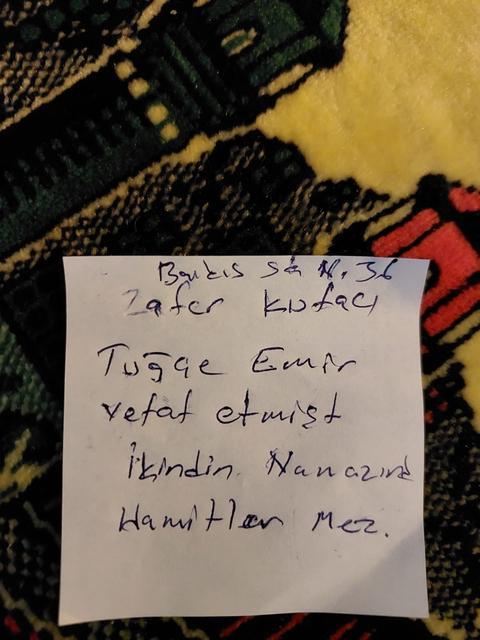 Barkıs sk N. 36
Zafer Kutacı
Tuğçe Emir
vefat etmişt
İkindin Namazınd
Hamitler Mez.